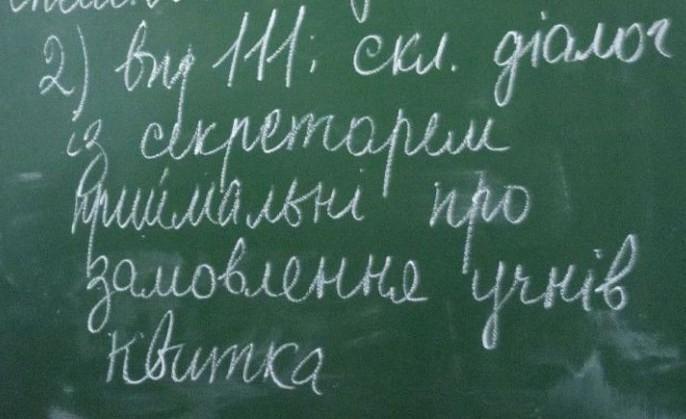 2) впр 111; скл. діалог
із секретарем
приймальні про
замовлення учнів
квитка